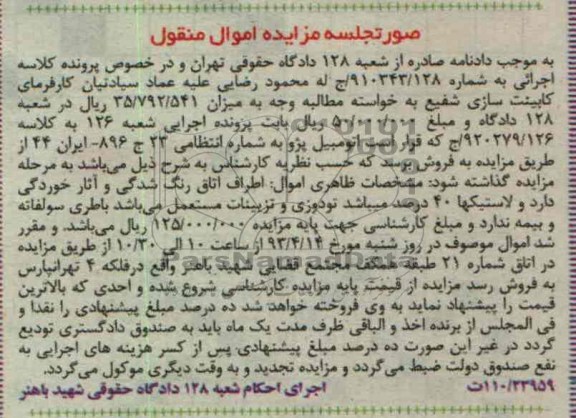 صورتجلسه مزایده اموال منقول
به موجب دادنامه صادره از شعبه ۱۲۸ دادگاه حقوقی تهران و در خصوص پرونده کلاسه
اجرائی به شماره ۹۱۰۳۴۳/۱۲۸/ج له محمود رضایی علیه عماد سیادتیان کارفرمای
کابینت سازی شفیع به خواسته مطالبه وجه به میزان ۳۵/۷۹۲/۵۴۱ ریال در شعبه
۱۲۸ دادگاه و مبلغ ۵۰/۰۰۰/۰۰۰ ریال بابت پرونده اجرایی شعبه ۱۲۶ به کلاسه
۹۲۰۲۷۹/۱۲۶/ج که قرار است اتومبیل پژو به شماره انتظامی ۲۳ ج ۸۹۶- ایران ۴۴ از
طریق مزایده به فروش برسد که حسب نظریه کارشناس به شرح ذیل می‌باشد به مرحله
مزایده گذاشته شود: مشخصات ظاهری اموال: اطراف اتاق رنگ شدگی و آثار خوردگی
دارد و لاستیکها ۴۰ درصد میباشد تودوزی و تزیینات مستعمل می‌باشد باطری سولفاته
و بیمه ندارد و مبلغ کارشناسی جهت پایه مزایده ۱۲۵/۰۰۰/۰۰۰ ریال می‌باشد. و مقرر
شد اموال موصوف در روز شنبه مورخ ۹۳/۴/۱۴ از ساعت ۱۰ الی ۱۰/۳۰ از طریق مزایده
در اتاق شماره ۲۱ طبقه همکف مجتمع قضایی شهید باهنر واقع درفلکه ۴ تهرانپارس
به فروش رسد مزایده از قیمت پایه مزایده کارشناسی شروع شده و احدی که بالاترین
قیمت را پیشنهاد نماید به وی فروخته خواهد شد ده درصد مبلغ پیشنهادی را نقدا و
فی المجلس از برنده اخذ و الباقی ظرف مدت یک ماه باید به صندوق دادگستری تودیع
گردد در غیر این صورت ده درصد مبلغ پیشنهادی پس از کسر هزینه های اجرایی به
نفع صندوق دولت ضبط می‌گردد و مزایده تجدید و به وقت دیگری موکول می‌گردد.
۱۱۰/۲۳۹۵۹ت اجرای احکام شعبه ۱۲۸ دادگاه حقوقی شهید باهنر
ParsNamadData